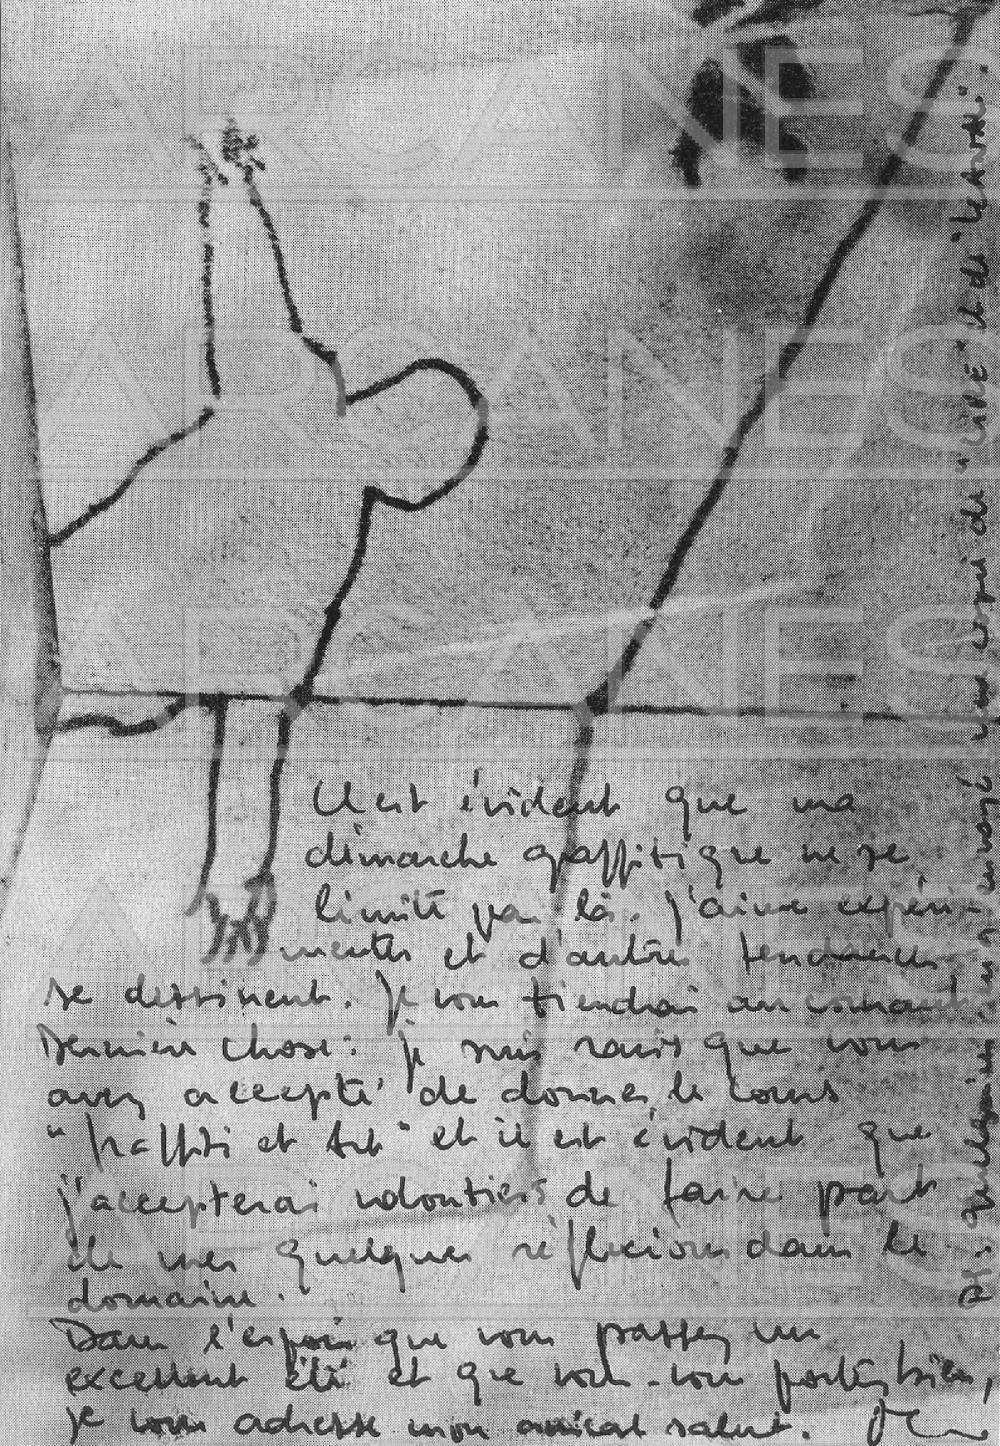 ARCANES
ARCANES
ARCANES
Il est évident que ma
démarche graffitique ne se
limite pas là. j'aime expéri-
menter et d'autres tendances
se dessinent. je vous tiendrai au courant
Dernière chose: je suis ravie que vous
avez accepté de donner le cours
"Graffiti et Art" et il est évident que
j'accepterai volontiers de faire part
de mes quelques réflexions dans le
domaine.
Dans l'espoir que vous passez un
excellent été et que vous-vous portez bien,
je vous adresse mon amical salut.
PS. quelqu'un m'a envoyé une copie de "LIRE" et de